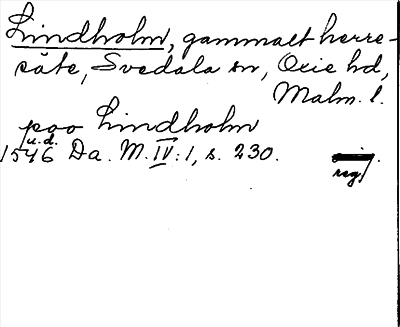 Lindholm, gammalt herre-
säte, Svedala sn, Oxie hd,
Malm. l.
paa Lindholm
u.d.
1546 Da. M. IV: 1, s. 230.
reg